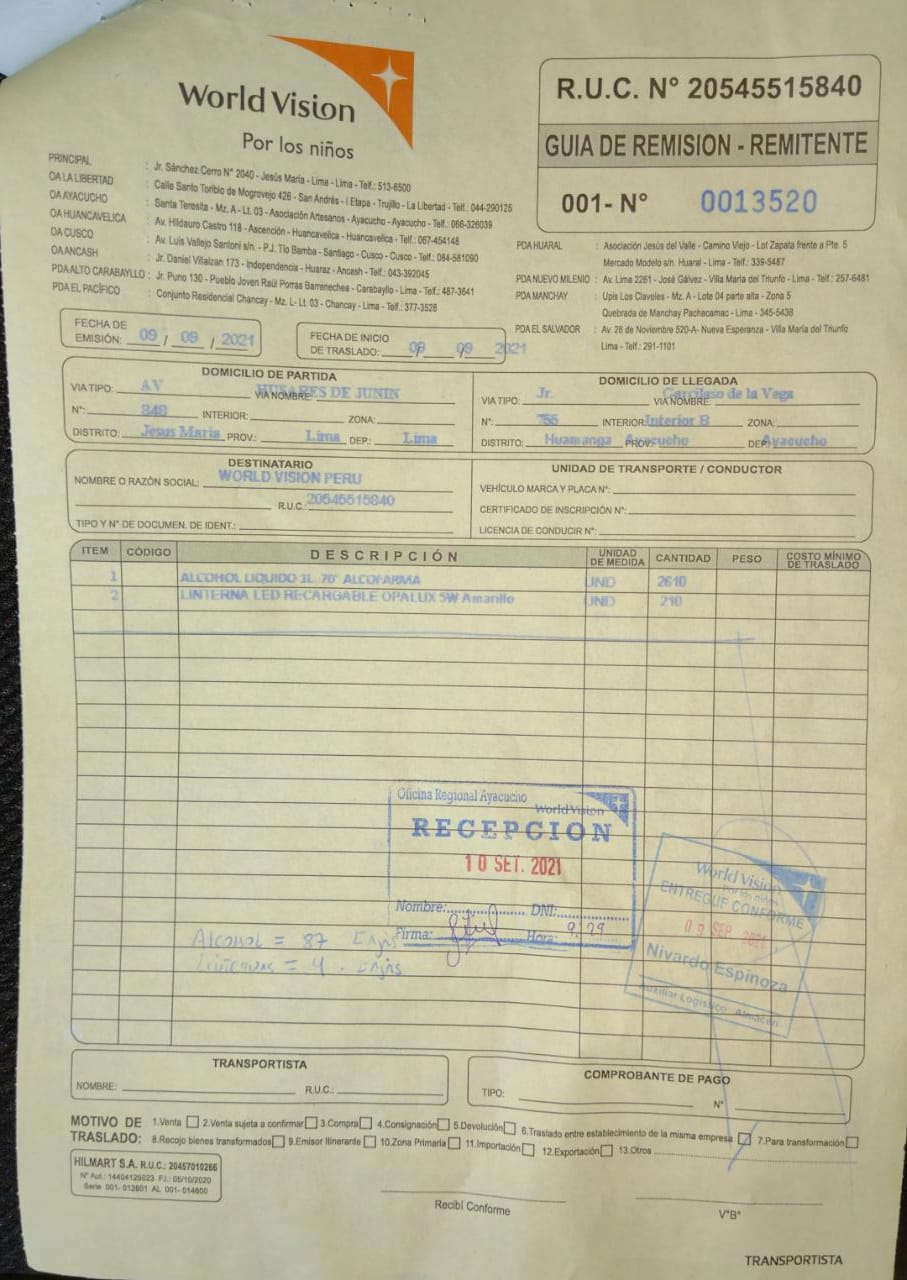 World Vision
Por los niños
R.U.C. N° 20545515840
GUIA DE REMISION - REMITENTE
001- N° 0013520
PRINCIPAL : Jr. Sánchez Cerro N° 2040 - Jesús María - Lima - Lima - Telf.: 513-6500
OA LA LIBERTAD : Calle Santo Toribio de Mogrovejo 426 - San Andrés - I Etapa - Trujillo - La Libertad - Telf. 044-290125
OA AYACUCHO : Santa Teresita - Mz. A - Lt. 03 - Asociación Artesanos - Ayacucho - Ayacucho - Telf: 066-326039
OA HUANCAVELICA : Av. Hildauro Castro 118 - Ascención - Huancavelica - Huancavelica - Telf: 067-454148
OA CUSCO : Av. Luis Vallejo Santoni s/n. - P.J. Tío Bamba - Santiago - Cusco - Cusco - Telf: 084-581090
OA ANCASH : Jr. Daniel Villaizan 173 - Independencia - Huaraz - Ancash - Telf.: 043-392045
PDA ALTO CARABAYLLO : Jr. Puno 130 - Pueblo Joven Raúl Porras Barrenechea - Carabayllo - Lima - Telf.: 487-3641
PDA EL PACÍFICO : Conjunto Residencial Chancay - Mz. L- Lt. 03 - Chancay - Lima - Telf.: 377-3528
PDA HUARAL : Asociación Jesús del Valle - Camino Viejo - Lot Zapata frente a Pte. 5
Mercado Modelo s/n. Huaral - Lima - Telf.: 339-5487
PDA NUEVO MILENIO : Av. Lima 2261 - José Gálvez - Villa María del Triunfo - Lima - Telf: 257-6481
PDA MANCHAY : Upis Los Claveles - Mz. A - Lote 04 parte alta - Zona 5
Quebrada de Manchay Pachacamac - Lima - 345-5438
PDA EL SALVADOR : Av. 26 de Noviembre 520-A- Nueva Esperanza - Villa María del Triunfo
Lima - Telf.: 291-1101
FECHA DE
EMISIÓN: 09 / 09 / 2021
FECHA DE INICIO
DE TRASLADO: 09 09 2021
DOMICILIO DE PARTIDA
VIA TIPO: AV VIA NOMBRE: HUSARES DE JUNIN
N°: 848 INTERIOR: ZONA:
DISTRITO: Jesus Maria PROV.: Lima DEP.: Lima
DOMICILIO DE LLEGADA
VIA TIPO: Jr. VIA NOMBRE: Garcilaso de la Vega
N°: 755 INTERIOR: Interior B ZONA:
DISTRITO: Huamanga PROV.: Ayacucho DEP.: Ayacucho
DESTINATARIO
NOMBRE O RAZÓN SOCIAL: WORLD VISION PERU
R.U.C.: 20545515840
TIPO Y N° DE DOCUMEN. DE IDENT.:
UNIDAD DE TRANSPORTE / CONDUCTOR
VEHÍCULO MARCA Y PLACA N°:
CERTIFICADO DE INSCRIPCIÓN N°:
LICENCIA DE CONDUCIR N°:
ITEM CÓDIGO DESCRIPCIÓN UNIDAD DE MEDIDA CANTIDAD PESO COSTO MÍNIMO DE TRASLADO
1 ALCOHOL LIQUIDO 1L 70° ALCOFARMA UND 2610
2 LINTERNA LED RECARGABLE OPALUX 5W Amarillo UND 210
Oficina Regional Ayacucho
World Vision
RECEPCION
10 SET. 2021
Nombre: DNI:
Firma: Hora: 9:29
World Vision
Por los niños
ENTREGUE CONFORME
09 SEP 2021
Nivardo Espinoza
Auxiliar Logístico Almacén
Alcohol = 87 Cajas
Linternas = 4 - Cajas
TRANSPORTISTA
NOMBRE: R.U.C.:
COMPROBANTE DE PAGO
TIPO: N°
MOTIVO DE TRASLADO: 1.Venta 2.Venta sujeta a confirmar 3.Compra 4.Consignación 5.Devolución 6.Traslado entre establecimiento de la misma empresa 7.Para transformación
8.Recojo bienes transformados 9.Emisor Itinerante 10.Zona Primaria 11.Importación 12.Exportación 13.Otros
HILMART S.A. R.U.C.: 20457010266
N° Aut.: 14404125023 F.I.: 05/10/2020
Serie 001- 012601 AL 001- 014600
Recibí Conforme
V°B°
TRANSPORTISTA